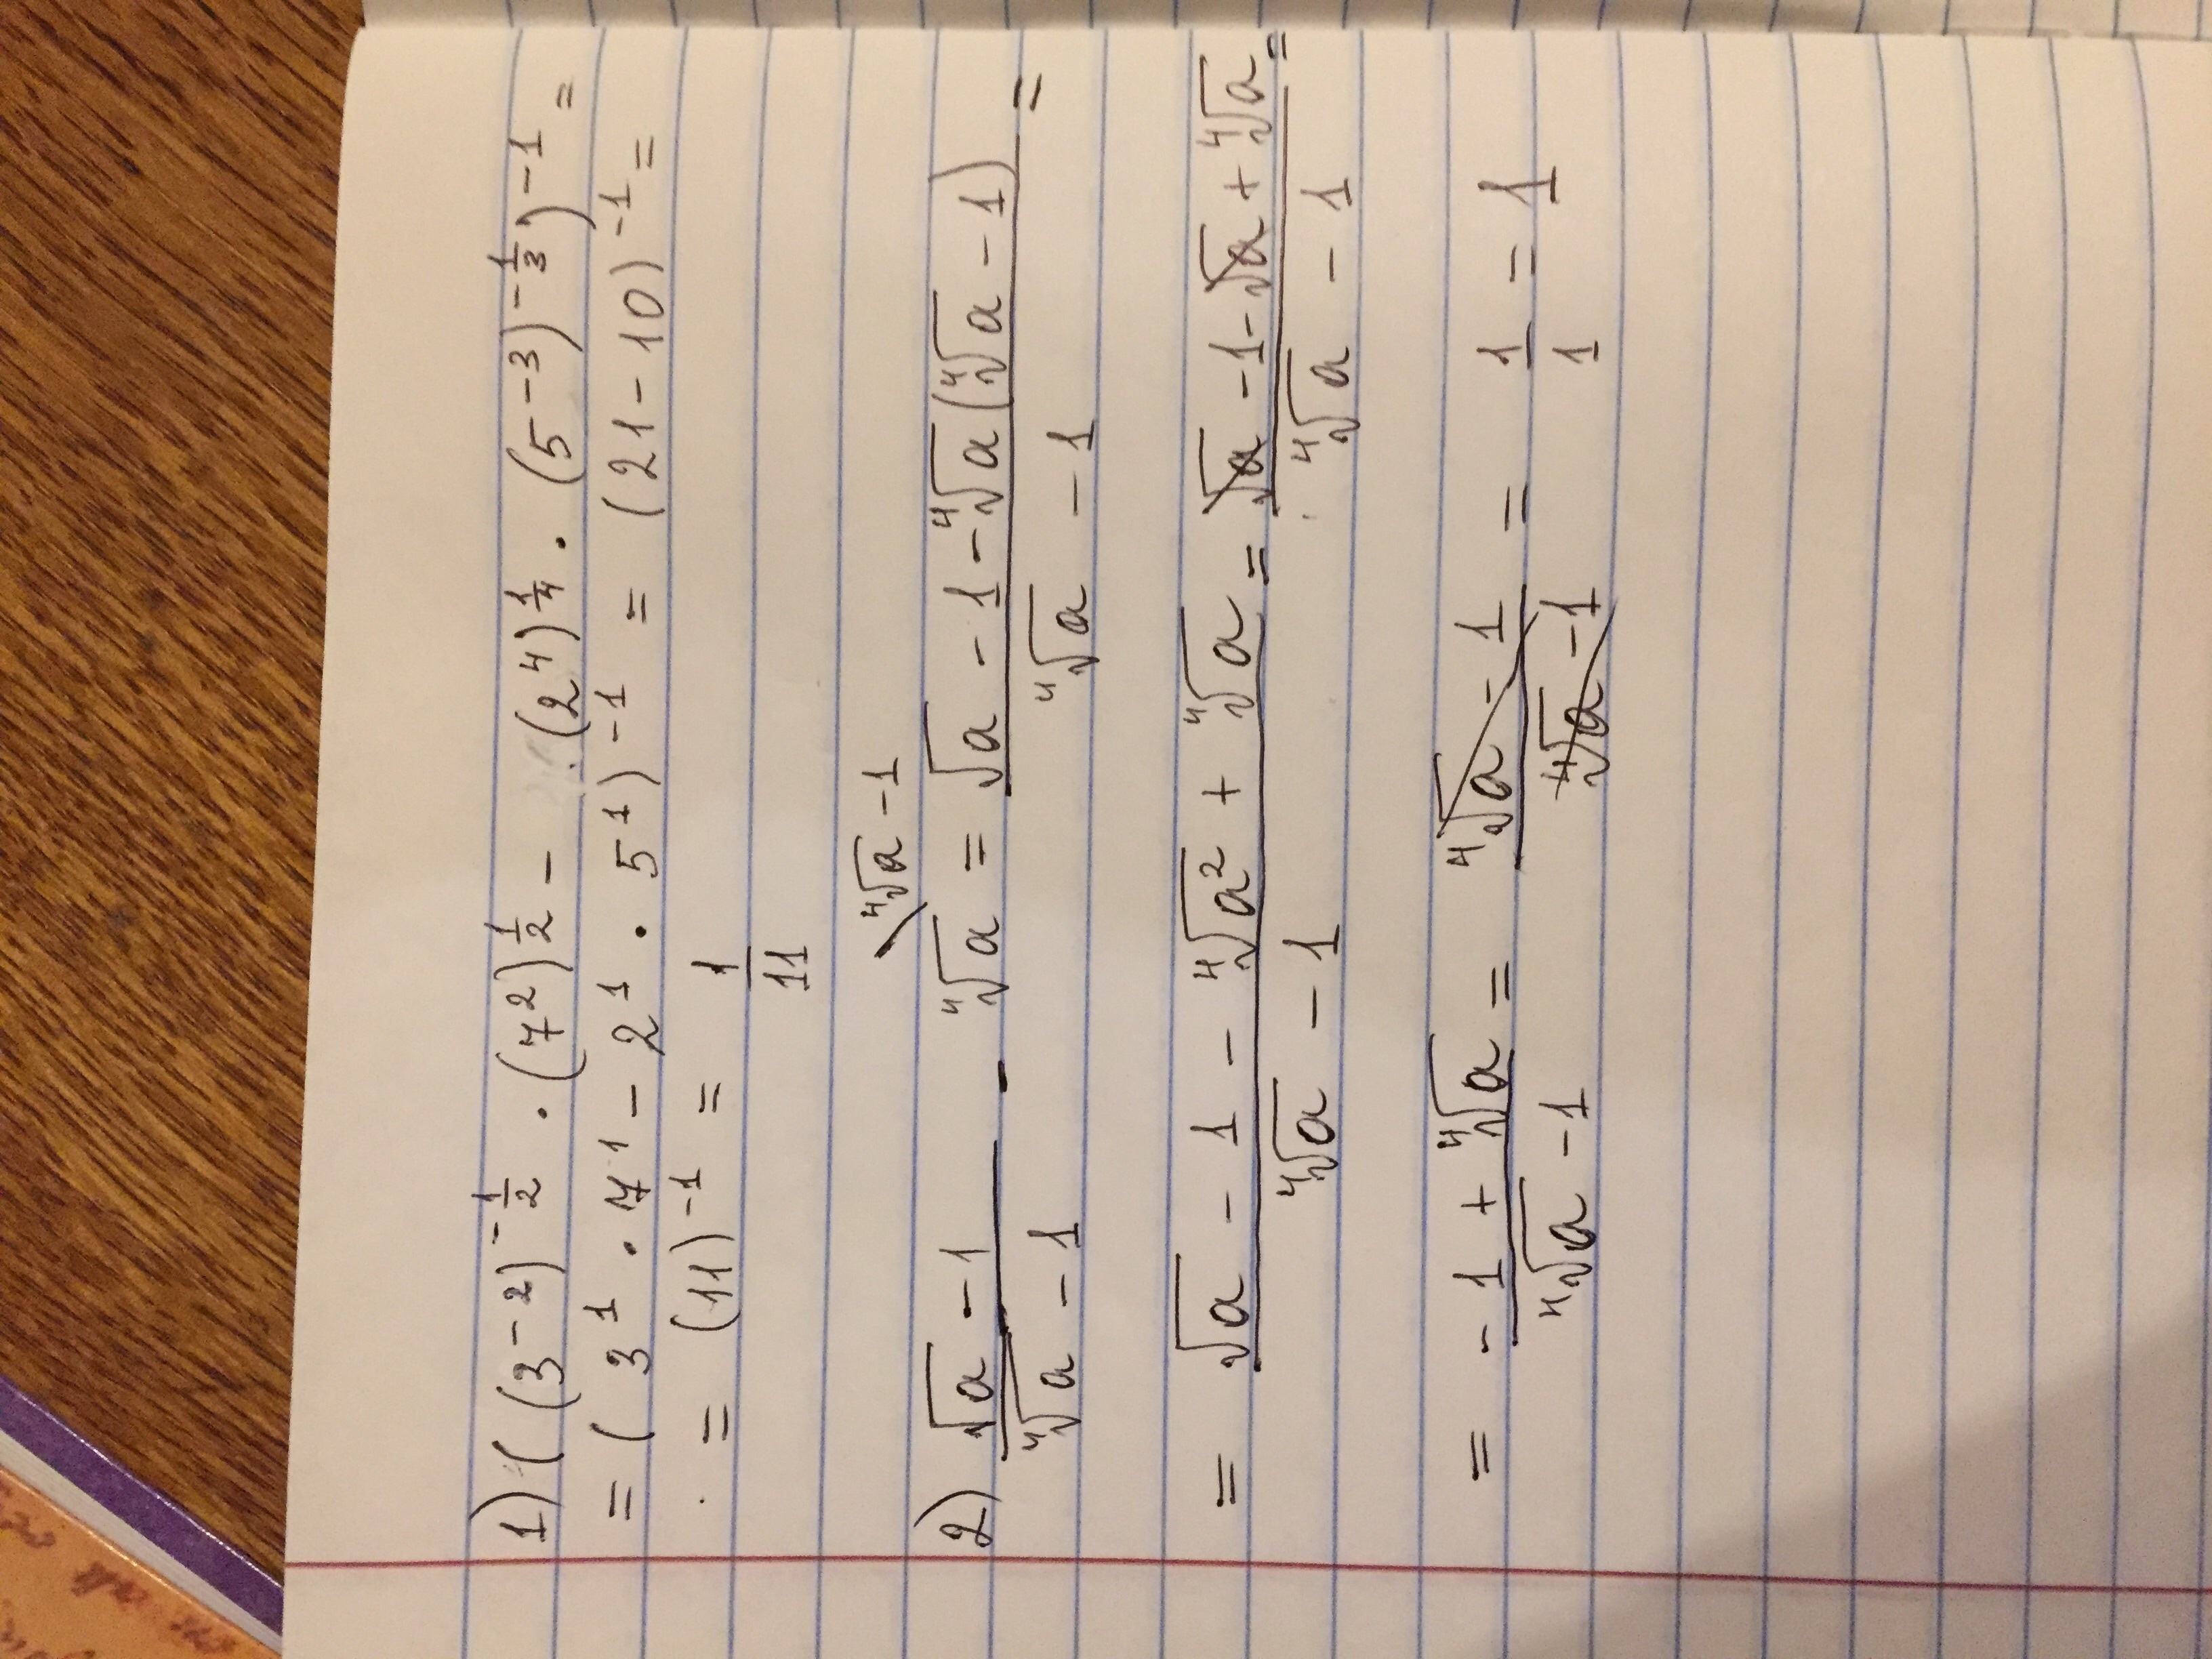 1) ((3⁻²)^(-1/2) · (7²)^(1/2) - (2⁴)^(1/4) · (5⁻³)^(-1/3))⁻¹ =
= (3¹ · 7¹ - 2¹ · 5¹)⁻¹ = (21 - 10)⁻¹ =
= (11)⁻¹ = 1/11
2) (√a - 1)/(⁴√a - 1) - ⁴√a \ ⁴√a - 1 = (√a - 1 - ⁴√a(⁴√a - 1))/(⁴√a - 1) =
= (√a - 1 - ⁴√a² + ⁴√a)/(⁴√a - 1) = (√a - 1 - √a + ⁴√a)/(⁴√a - 1) =
= (-1 + ⁴√a)/(⁴√a - 1) = (⁴√a - 1)/(⁴√a - 1) = 1/1 = 1